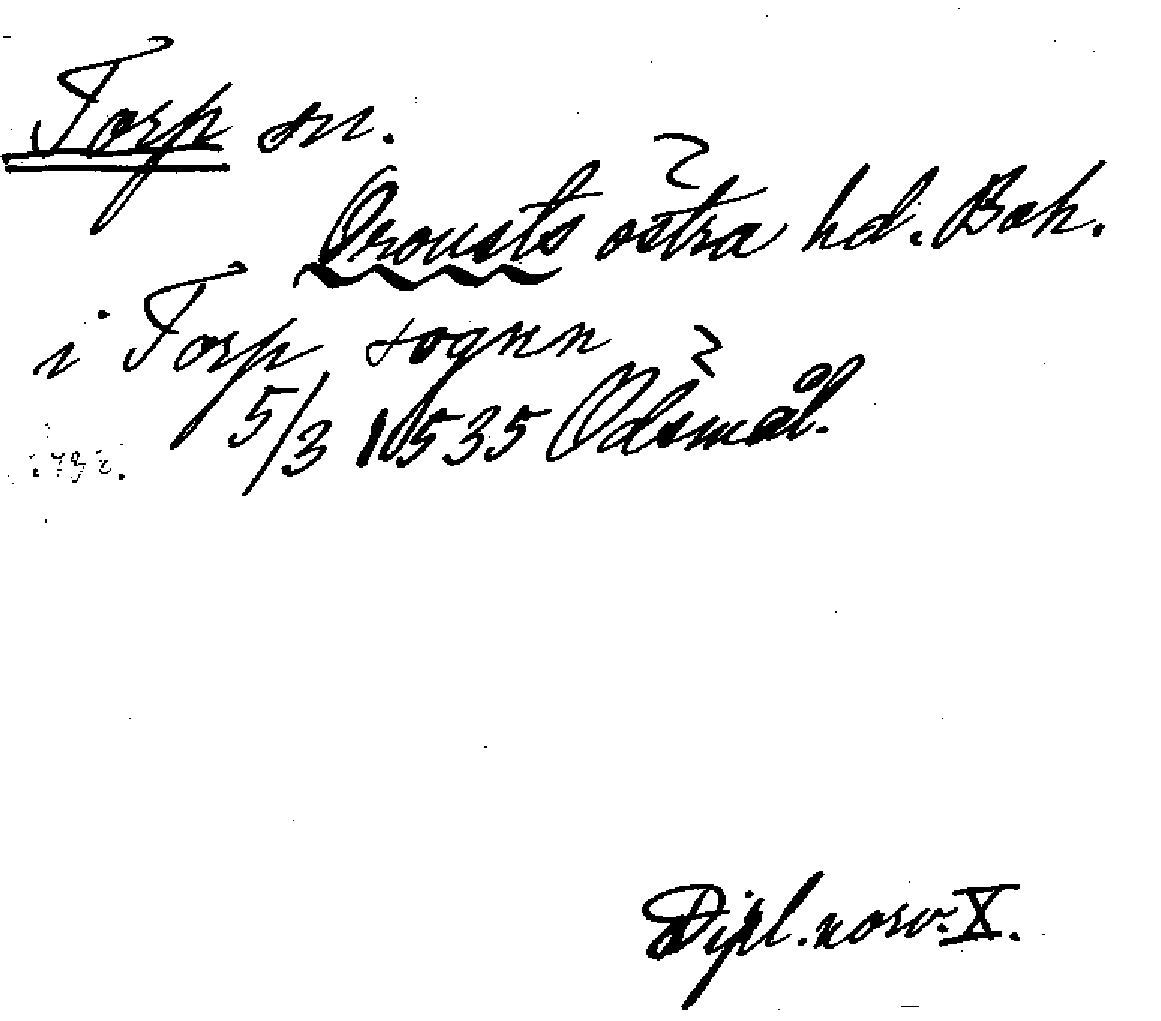 Torp sn.
Orousts östra hd. Boh.
i Torp sognn
5/3 1535 Odsmål.
Dipl. norv. X.